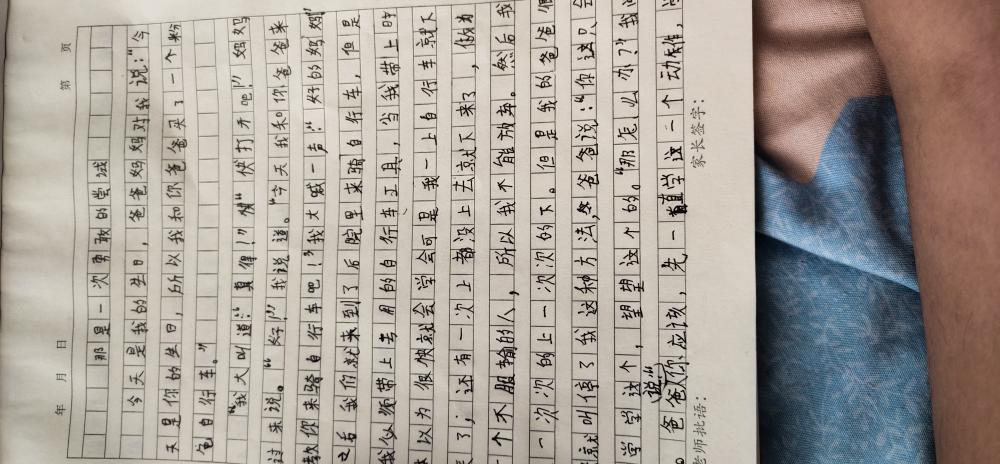 年 月 日 第 页
那是一次勇敢的尝试
今天是我的生日，爸爸妈妈对我说：“今
天是你的生日，所以我和你爸爸买了一个粉
色自行车。”
“我大叫道：“真得！”“快打开吧！”妈妈
过来说。“好！”我说道。“今天我和你爸爸来
教你来骑自行车吧！”我大喊一声：“好的妈妈”
之后，我们就来到了后院里来骑自行车，但是
我必须带上专用的自行车工具，当我带上的
以为很快就会学会可是我一上自行车就下
了；还有一次上都没上去就下来了，做为
一个不服输的人，所以我不能放弃。然后我
一次次的上一次次的下。但是我的爸爸
就叫停了我这种方法，爸爸说：“你这只
学学这个，望望这个的。”那怎么办？”我
。爸爸说“你应该，先一直学这一个动作，
老师批语： 家长签字：